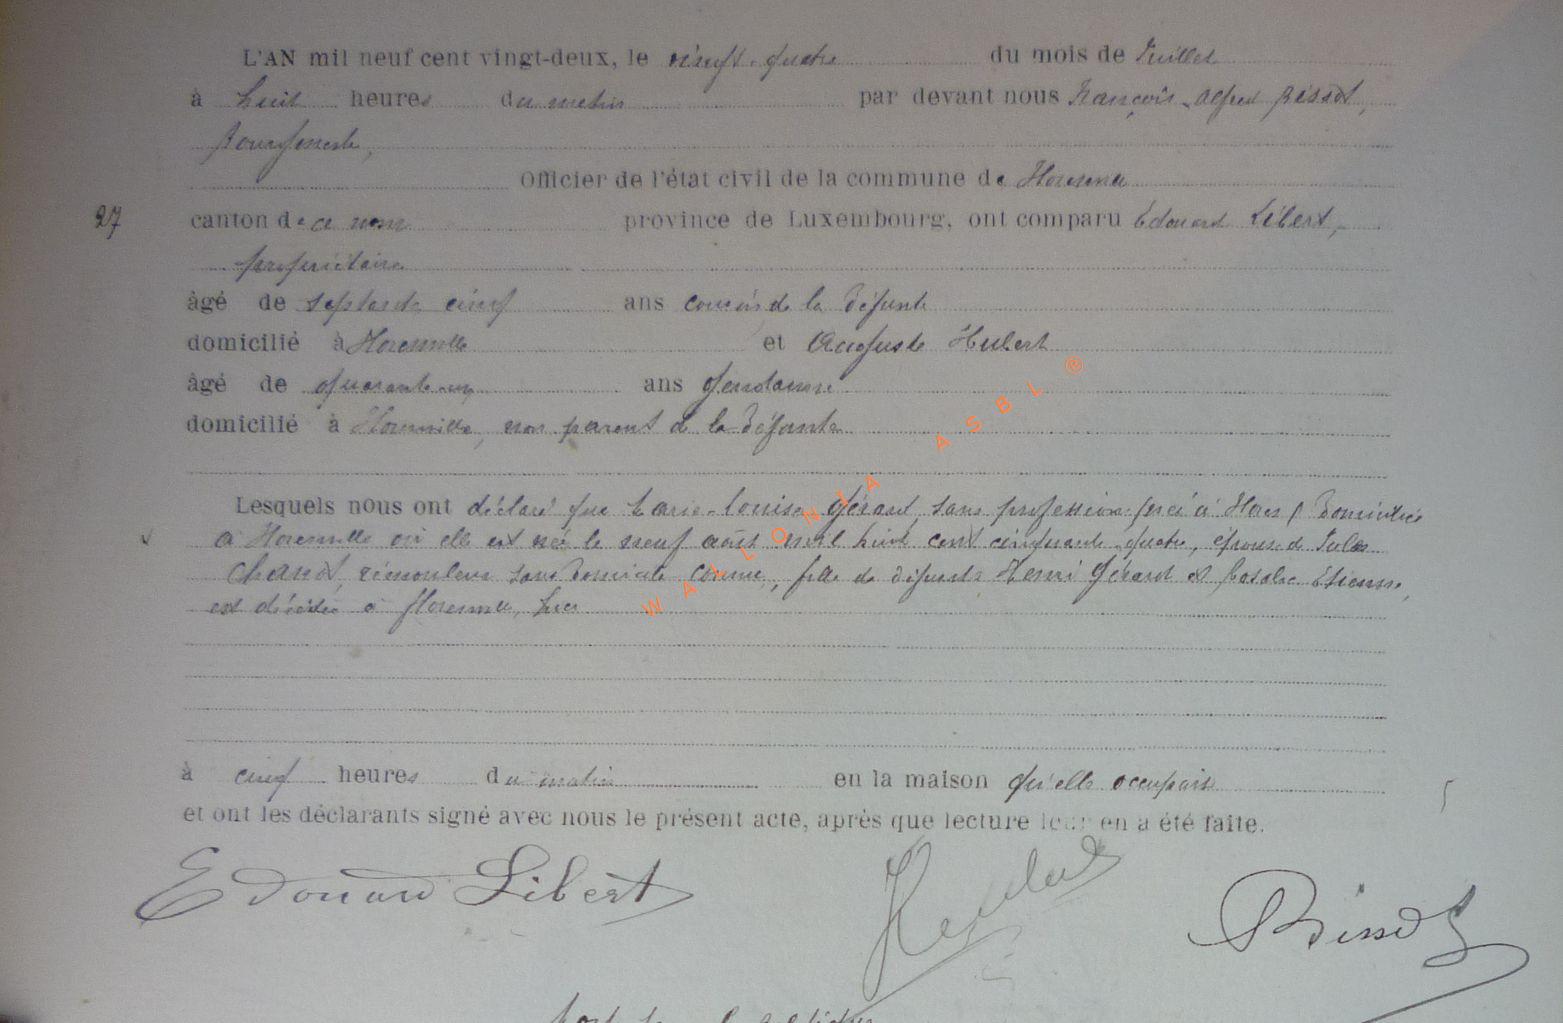 L'AN mil neuf cent vingt-deux, le vingt-quatre du mois de Juillet
à huit heures du matin par devant nous François-Alfred Bissot,
Bourgmestre,
Officier de l'état civil de la commune de Florenville
27 canton de ce nom province de Luxembourg, ont comparu Edouard Libert,
propriétaire
âgé de septante cinq ans cousin de la défunte
domicilié à Florenville et Auguste Hubert
âgé de quarante-un ans gendarme
domicilié à Florenville, non parent de la défunte
Lesquels nous ont déclaré que Marie-Louise Gérard sans profession domiciliée
à Florenville où elle est née le neuf août mil huit cent cinquante-quatre, épouse de Jules
rémouleur sans domicile connu, fille de défunts Henri Gérard et Rosalie Etienne,
est décédée à Florenville, hier
à cinq heures du matin en la maison qu'elle occupait
et ont les déclarants signé avec nous le présent acte, après que lecture leur en a été faite.
Edouard Libert Hubert Bissot
WALLONIA ASBL ®